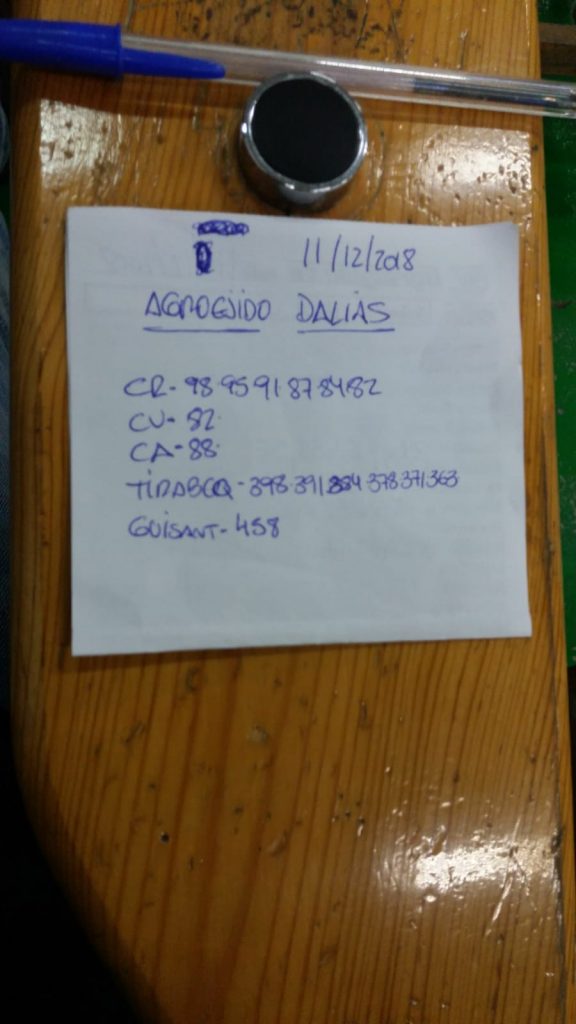 11/12/2018
AGROEJIDO DALIAS
CR- 98 95 91 87 84 82
CU- 82.
CA- 88.
TIRABEQ - 398.391 384.378 371 363
GUISANT- 458